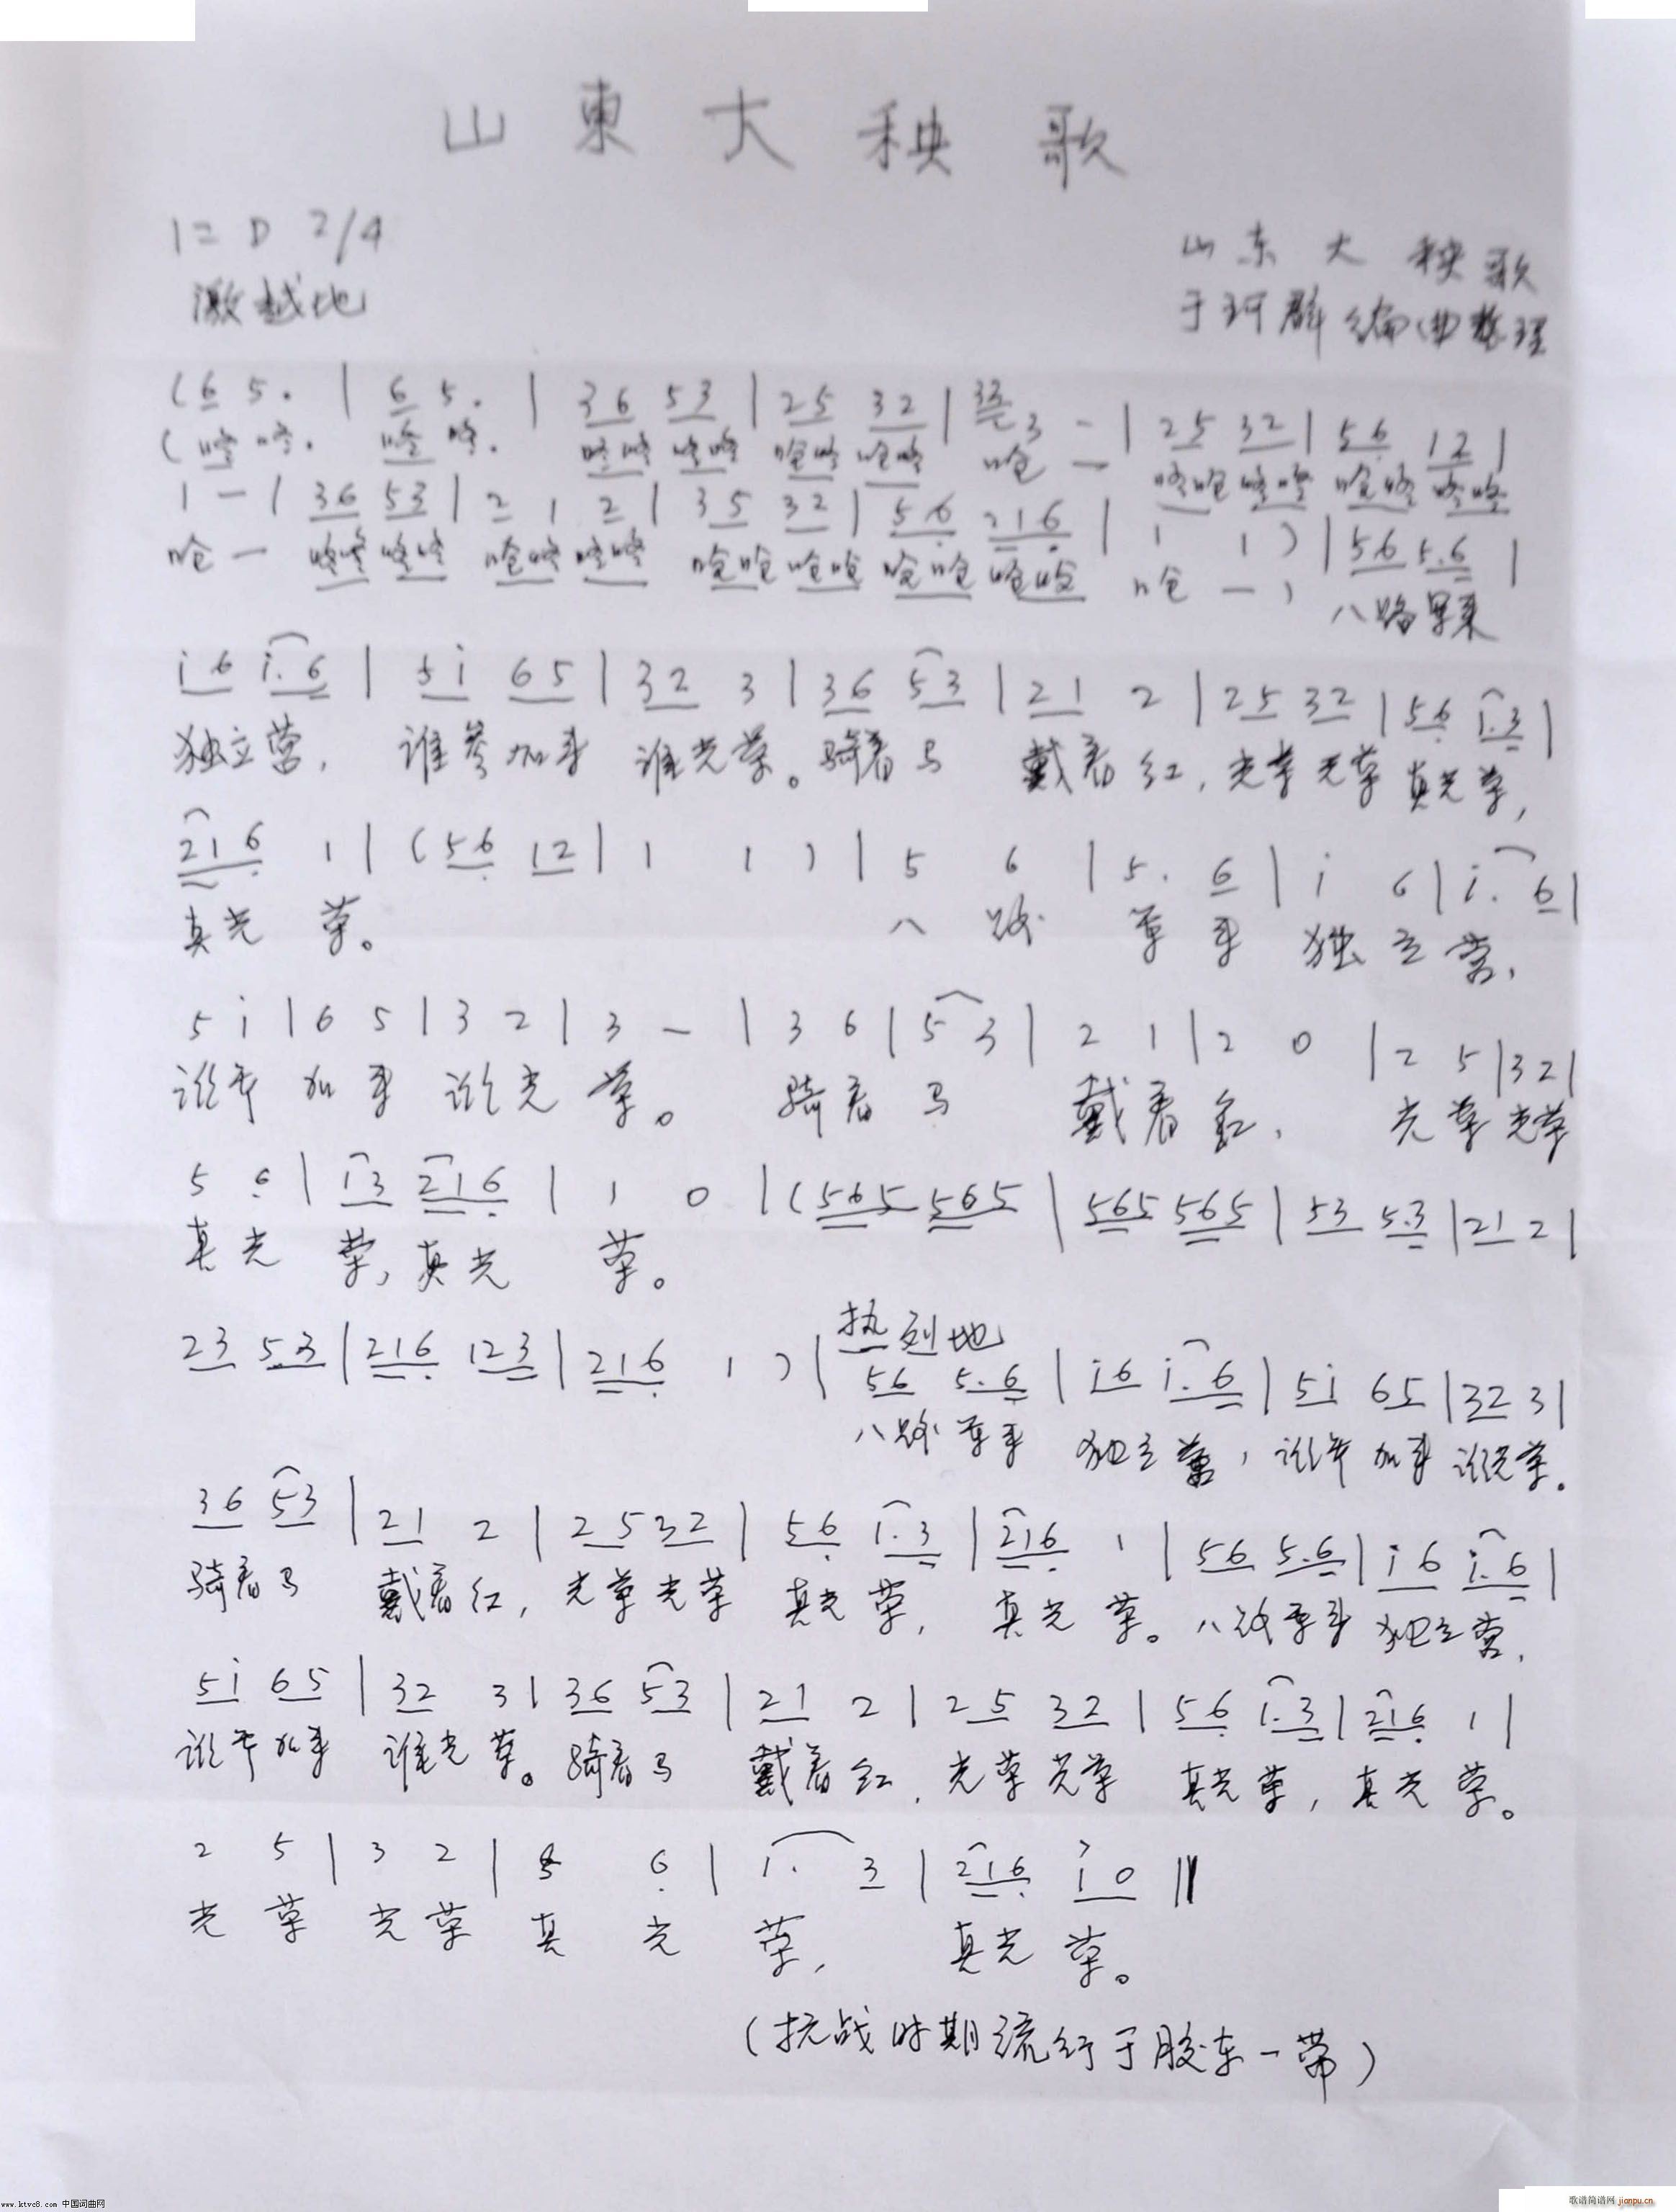 山東大秧歌
1=D 2/4
激越地
山东大秧歌
于珂群编曲整理
(6 5. | 6 5. | 36 53 | 25 32 | 3 - | 25 32 | 56 12 |
1 - | 36 53 | 2 1 2 | 35 32 | 56 216 | 1 1 ) | 56 5.6 |
八路军来
i6 i.6 | 5i 65 | 32 3 | 36 53 | 21 2 | 25 32 | 56 1.3 |
独立营, 谁参加来 谁光荣。骑着马 戴着红, 光荣光荣 真光荣,
216 1 | (56 12 | 1 1 ) | 5 6 | 5. 6 | i 6 | i. 6 |
真光 荣。 八 路 军 来 独 立 营,
5 i | 6 5 | 3 2 | 3 - | 3 6 | 5 3 | 2 1 | 2 0 | 2 5 | 3 2 |
谁参 加来 谁光 荣。 骑着 马 戴着红, 光荣光荣
5 6 | 13 216 | 1 0 | (565 565 | 565 565 | 53 5.3 | 21 2 |
真光 荣, 真光 荣。
23 5.3 | 216 123 | 216 1 ) | 56 5.6 | i6 i.6 | 5i 65 | 32 3 |
热烈地
八路军来 独立营, 谁参加来 谁光荣。
36 53 | 21 2 | 25 32 | 56 1.3 | 216 1 | 56 5.6 | i6 i.6 |
骑着马 戴着红, 光荣光荣 真光荣, 真光荣。八路军来 独立营,
5i 65 | 32 3 | 36 53 | 21 2 | 25 32 | 56 1.3 | 216 1 |
谁参加来 谁光荣。骑着马 戴着红, 光荣光荣 真光荣, 真光荣。
2 5 | 3 2 | 5 6 | 1. 3 | 216 i 0 ‖
光 荣 光荣 真 光 荣, 真光荣。
(抗战时期流行于胶东一带)
www.ktvc8.com 中国词曲网
歌谱简谱网 jianpu.cn